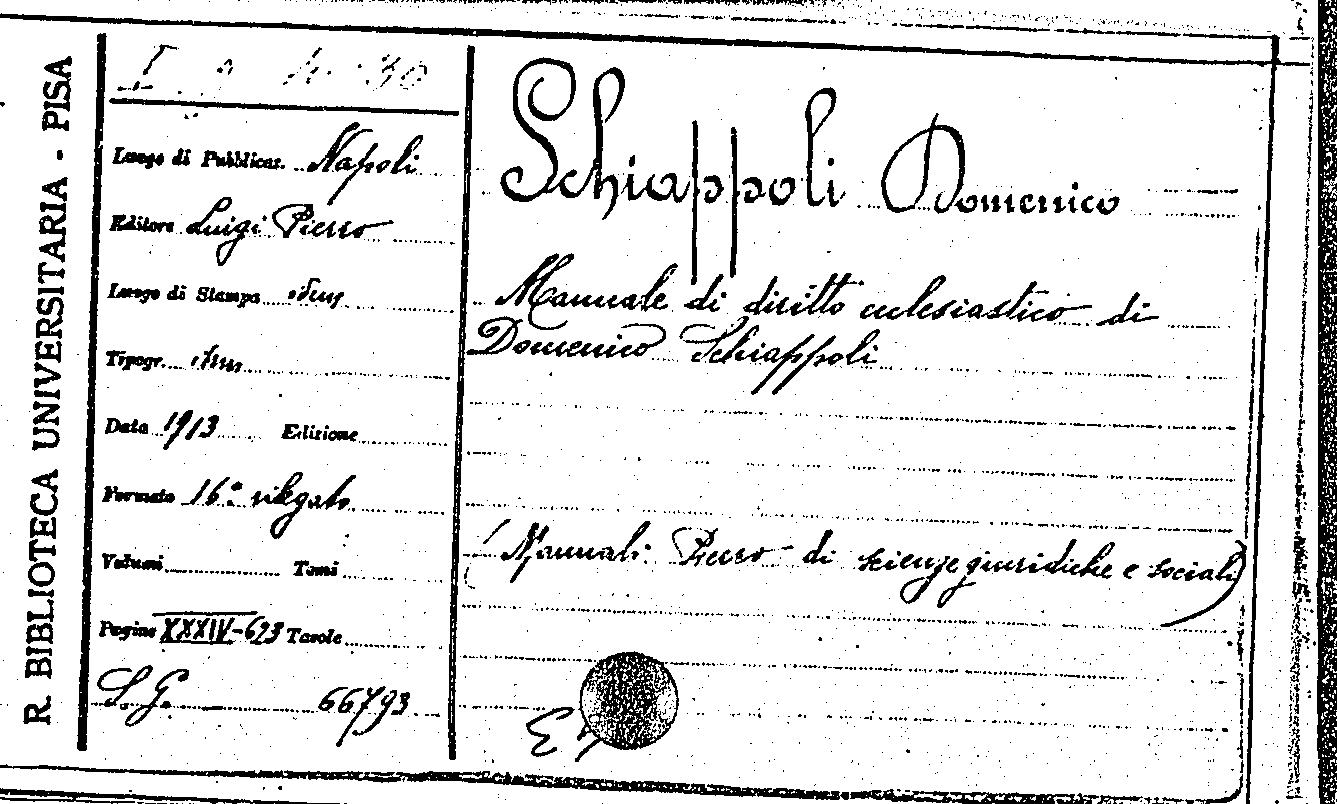 R. BIBLIOTECA UNIVERSITARIA - PISA
Luogo di Pubblicaz. Napoli
Editore Luigi Pierro
Luogo di Stampa idem
Tipogr. idem
Data 1913 Edizione
Formato 16° rilegato
Volumi Tomi
Pagine XXXIV-693 Tavole
S.G. 66793
Schiappoli Domenico
Manuale di diritto ecclesiastico di
Domenico Schiappoli
(Manuali Pierro di scienze giuridiche e sociali)